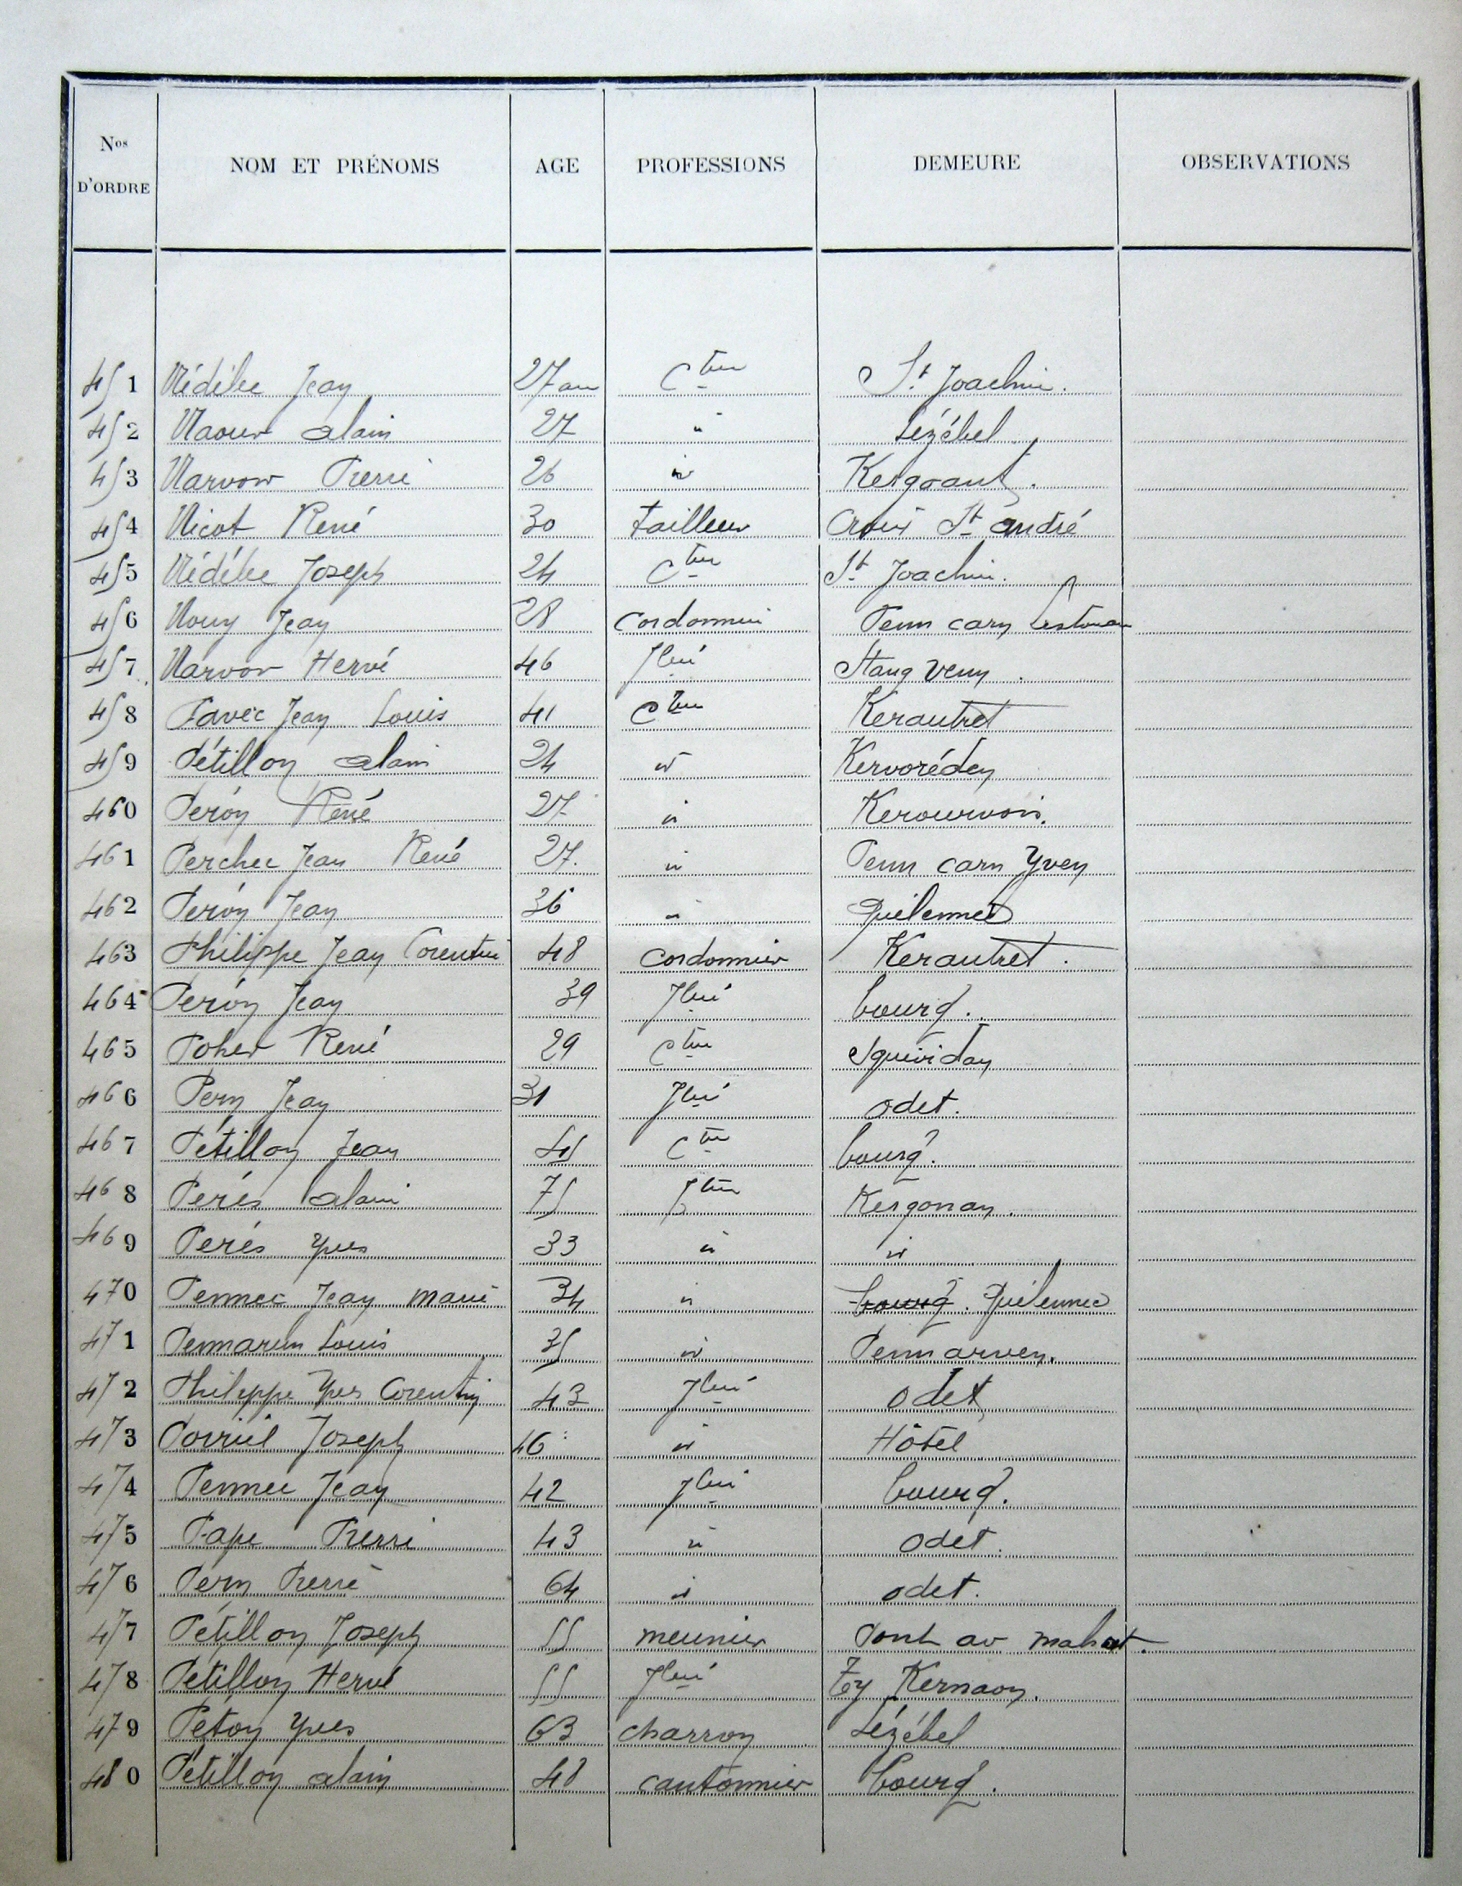 Nos D'ORDRE NOM ET PRÉNOMS AGE PROFESSIONS DEMEURE OBSERVATIONS
451 Nédélec Jean 27 ans Cteur St Joachim.
452 Naour alain 27 " Lézébel
453 Narvor Pierre 26 " Kergoant.
454 Nicot René 30 tailleur Croix St andré
455 Nédélec Joseph 24 Cteur St Joachim.
456 Noury Jean 28 Cordonnier Penn carn Lestonan
457 Narvor Hervé 46 Jlier Stang venn.
458 Favec Jean Louis 41 Cteur Kerautret
459 Pétillon alain 24 " Kervoréden
460 Peron René 27 " Kerourvois.
461 Perchec Jean René 27. " Penn carn Yven
462 Peron Jean 36 " Quilennec
463 Philippe Jean Corentin 48 cordonnier Kerautret.
464 Peron Jean 39 Jlier bourg.
465 Poher René 29 Cteur Squividan
466 Pern Jean 31 Jlier odet.
467 Pétillon Jean 45 Cteur bourg.
468 Perés alain 75 Cteur Kergonan.
469 Perés Yves 33 " "
470 Pennec Jean marie 34 " bourg. Quilennec
471 Pennarun Louis 35 " Pennarven.
472 Philippe Yves Corentin 43 Jlier odet
473 Joseph 46 " Hôtel
474 Pennec Jean 42 Jlier bourg.
475 Pape Pierre 43 " odet.
476 Pern Pierre 64 " odet.
477 Pétillon Joseph 55 meunier Pont av mahat.
478 Pétillon Hervé 55 Jlier Ty Kernaon.
479 Peton Yves 63 charron Lézébel
480 Pétillon alain 48 cantonnier bourg.